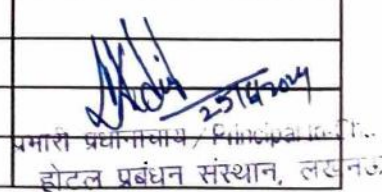 25/4/2024
प्रभारी प्रधानाचार्य / Principal
होटल प्रबंधन संस्थान, लखनऊ